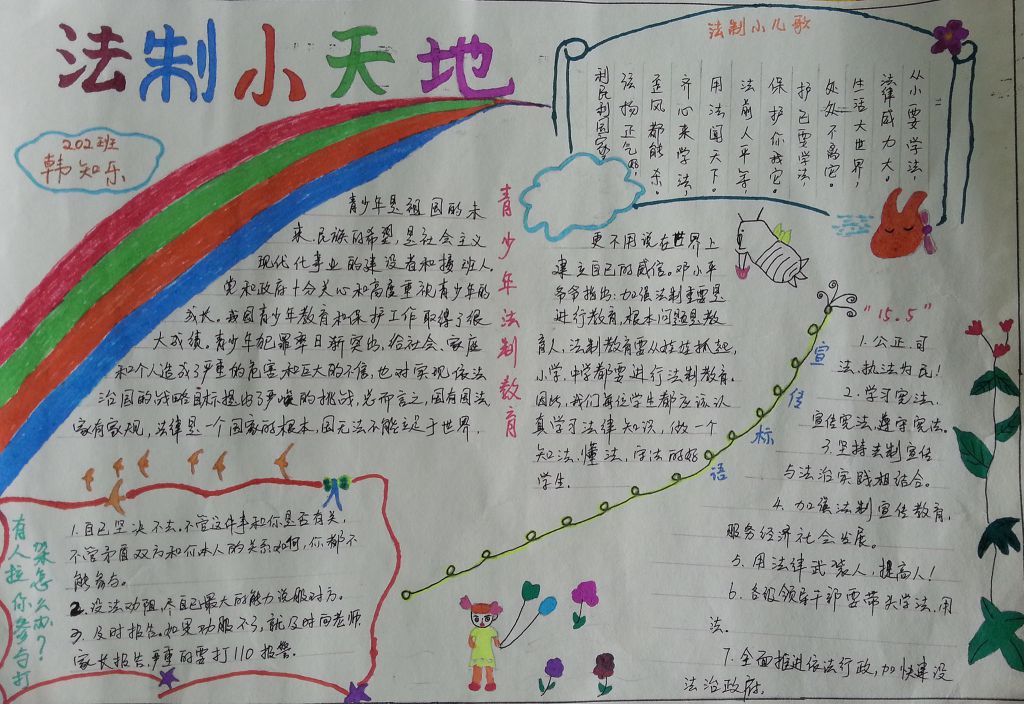 法制小天地
202班
韩知乐
青少年法制教育
青少年是祖国的未
来、民族的希望,是社会主义
现代化事业的建设者和接班人。
党和政府十分关心和高度重视青少年的
成长。我国青少年教育和保护工作取得了很
大成绩。青少年犯罪率日渐突出,给社会、家庭
和个人造成了严重的危害和巨大的不信,也对实现依法
治国的战略目标提出了严峻的挑战,总而言之,国有国法
家有家规,法律是一个国家的根本,国无法不能立足于世界,
更不用说在世界上
建立自己的威信。邓小平
爷爷指出:加强法制重要是
进行教育,根本问题是教
育人,法制教育要从娃娃抓起,
小学、中学都要进行法制教育。
因此,我们每位学生都应该认
真学习法律知识,做一个
知法、懂法、守法的好
学生.
法制小儿歌
从小要学法,
法律威力大。
生活大世界,
处处不离它。
护己要学法,
保护你我它。
法前人平等,
用法闯天下。
齐心来学法,
歪风都能杀。
弘扬正气歌,
利民利国家
有人拉你参与打
架怎么办?
1.自己坚决不去。不管这件事和你是否有关,
不管矛盾双方和你本人的关系如何,你都不
能参与。
2.设法劝阻,尽自己最大的能力说服对方。
3.及时报告。如果劝服不了,就及时向老师
家长报告,严重的要打110报警。
宣传标语
"15.5"
1.公正、可
法、执法为民!
2.学习宪法、
宣传宪法,遵守宪法。
3.坚持法制宣传
与法治实践相结合。
4.加强法制宣传教育,
服务经济社会发展。
5.用法律武装人,提高人!
6.各级领导干部要带头学法、用
法.
7.全面推进依法行政,加快建设
法治政府,